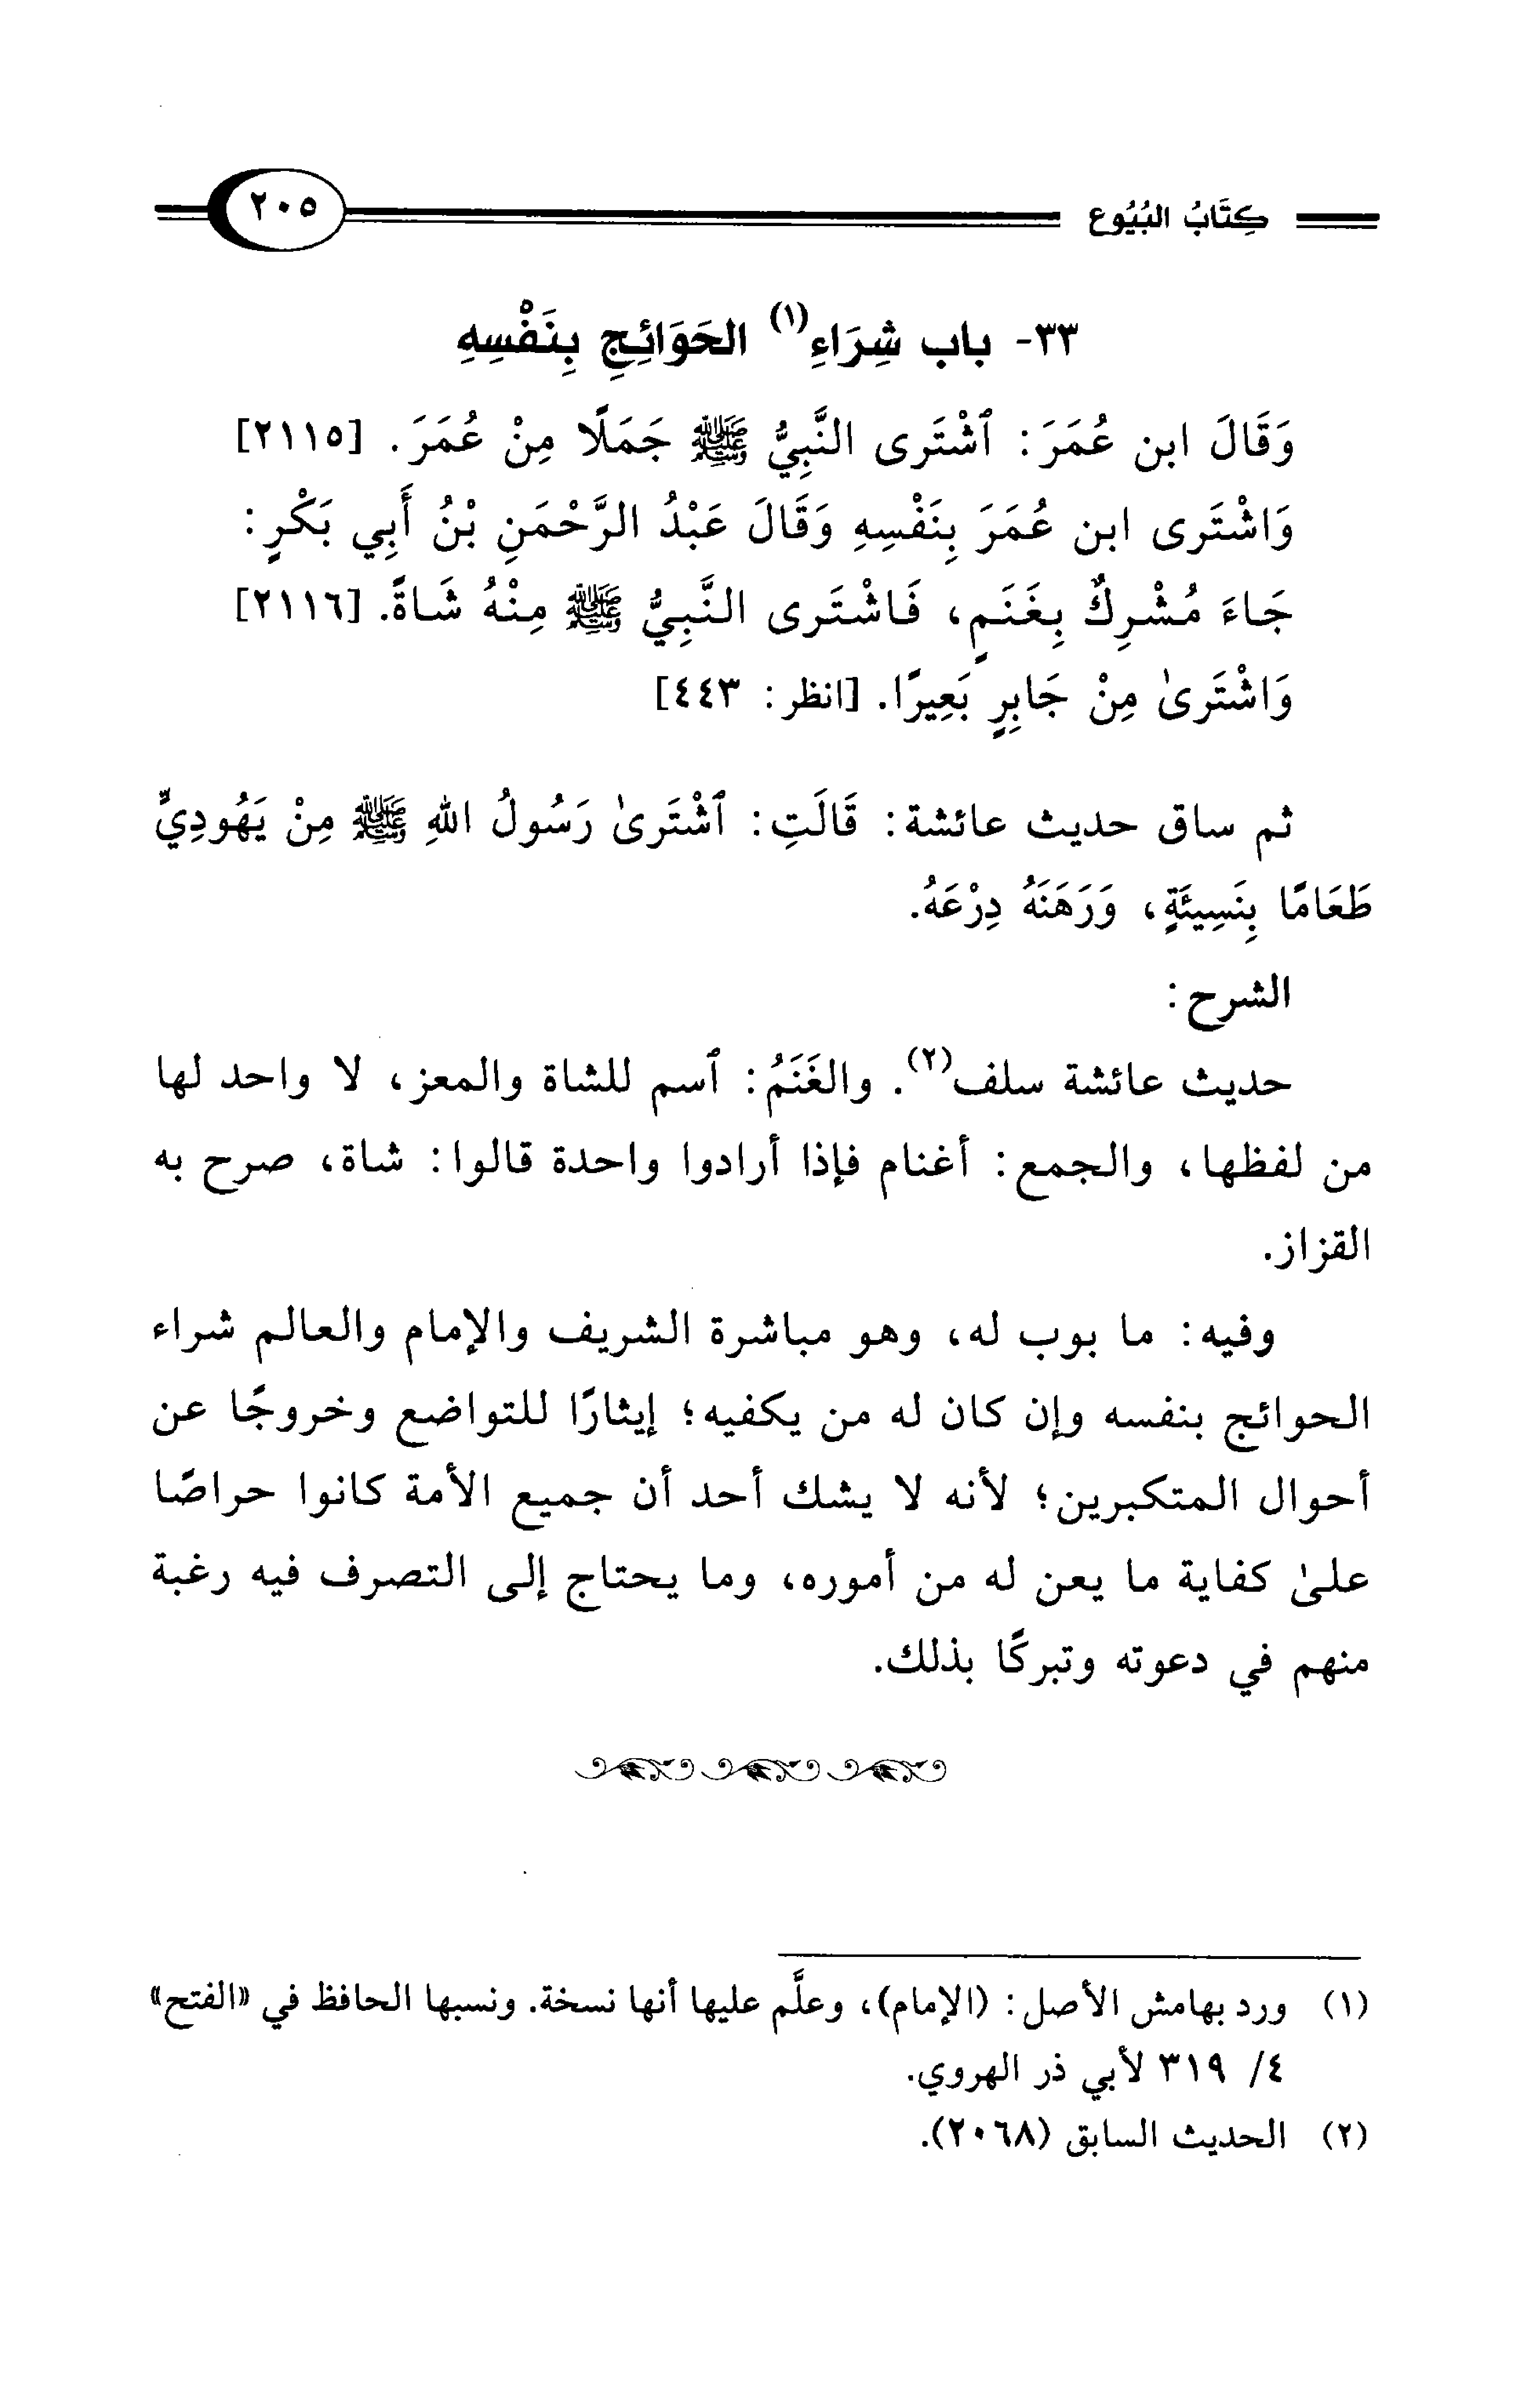 كِتَابُ البُيُوع ٢٠٥
٣٣- باب شِرَاءِ(١) الحَوَائِجِ بِنَفْسِهِ
وَقَالَ ابن عُمَرَ: ٱشْتَرى النَّبِيُّ ﷺ جَمَلًا مِنْ عُمَرَ. [٢١١٥]
وَاشْتَرى ابن عُمَرَ بِنَفْسِهِ وَقَالَ عَبْدُ الرَّحْمَنِ بْنُ أَبِي بَكْرٍ:
جَاءَ مُشْرِكٌ بِغَنَمٍ، فَاشْتَرى النَّبِيُّ ﷺ مِنْهُ شَاةً. [٢١١٦]
وَاشْتَرىٰ مِنْ جَابِرٍ بَعِيرًا. [انظر: ٤٤٣]
ثم ساق حديث عائشة: قَالَتِ: ٱشْتَرىٰ رَسُولُ اللهِ ﷺ مِنْ يَهُودِيٍّ
طَعَامًا بِنَسِيئَةٍ، وَرَهَنَهُ دِرْعَهُ.
الشرح:
حديث عائشة سلف(٢). والغَنَمُ: ٱسم للشاة والمعز، لا واحد لها
من لفظها، والجمع: أغنام فإذا أرادوا واحدة قالوا: شاة، صرح به
القزاز.
وفيه: ما بوب له، وهو مباشرة الشريف والإمام والعالم شراء
الحوائج بنفسه وإن كان له من يكفيه؛ إيثارًا للتواضع وخروجًا عن
أحوال المتكبرين؛ لأنه لا يشك أحد أن جميع الأمة كانوا حراصًا
علىٰ كفاية ما يعن له من أموره، وما يحتاج إلى التصرف فيه رغبة
منهم في دعوته وتبركًا بذلك.
(١) ورد بهامش الأصل: (الإمام)، وعلَّم عليها أنها نسخة. ونسبها الحافظ في «الفتح»
٤/ ٣١٩ لأبي ذر الهروي.
(٢) الحديث السابق (٢٠٦٨).